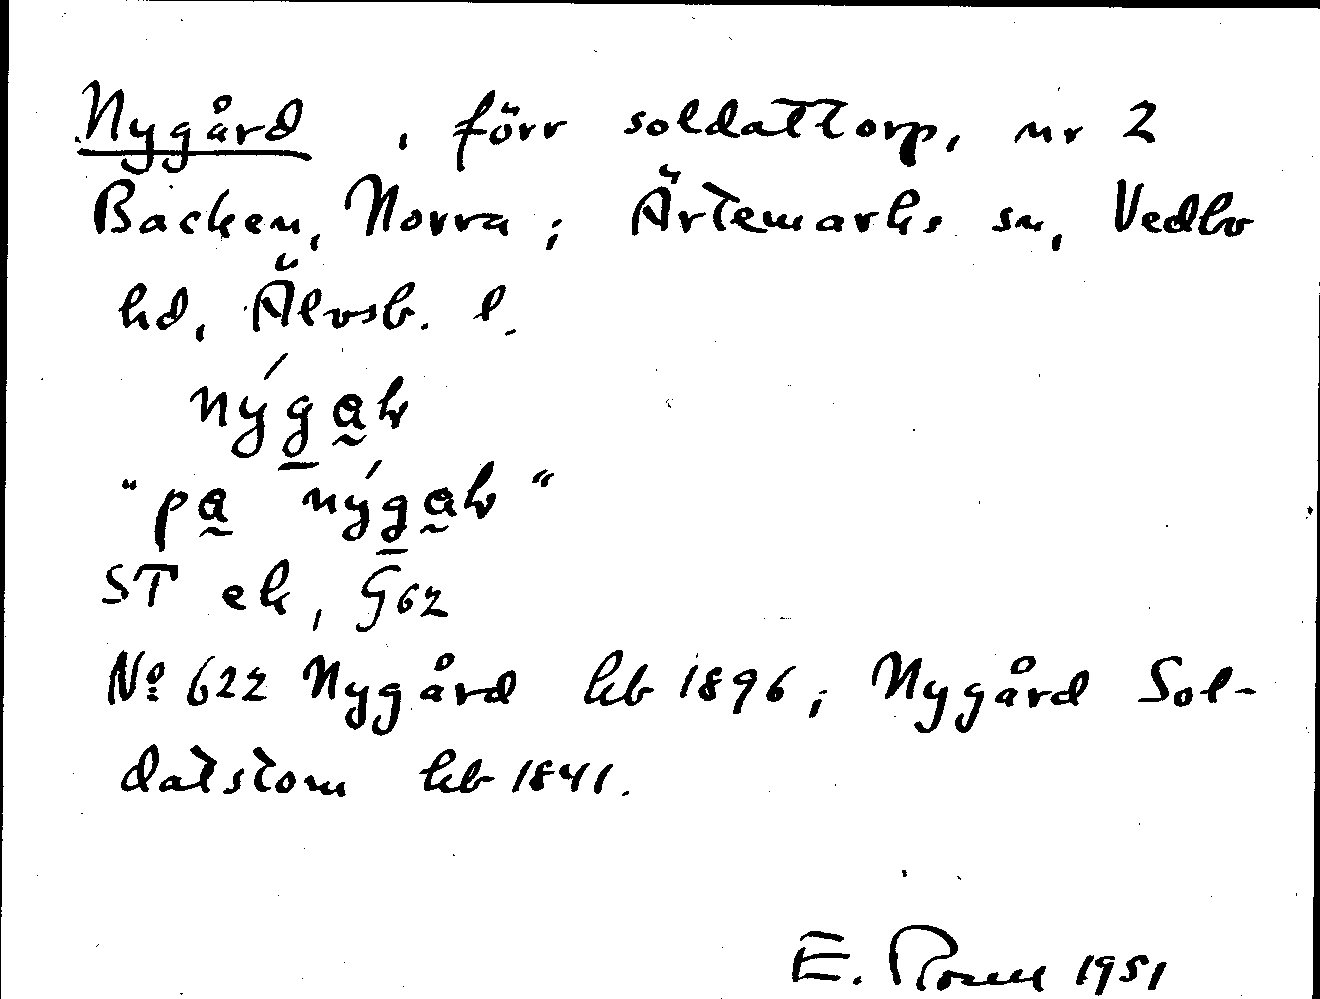 Nygård, förr soldattorp, nr 2
Backen, Norra; Ärtemarks sn, Vedbo
hd, Älvsb. l.
nýgaḷ
"pa nýgaḷ"
ST ek, G62
No 622 Nygård kb 1896; Nygård Sol-
datstom kb 1841.
E. Rosell 1951